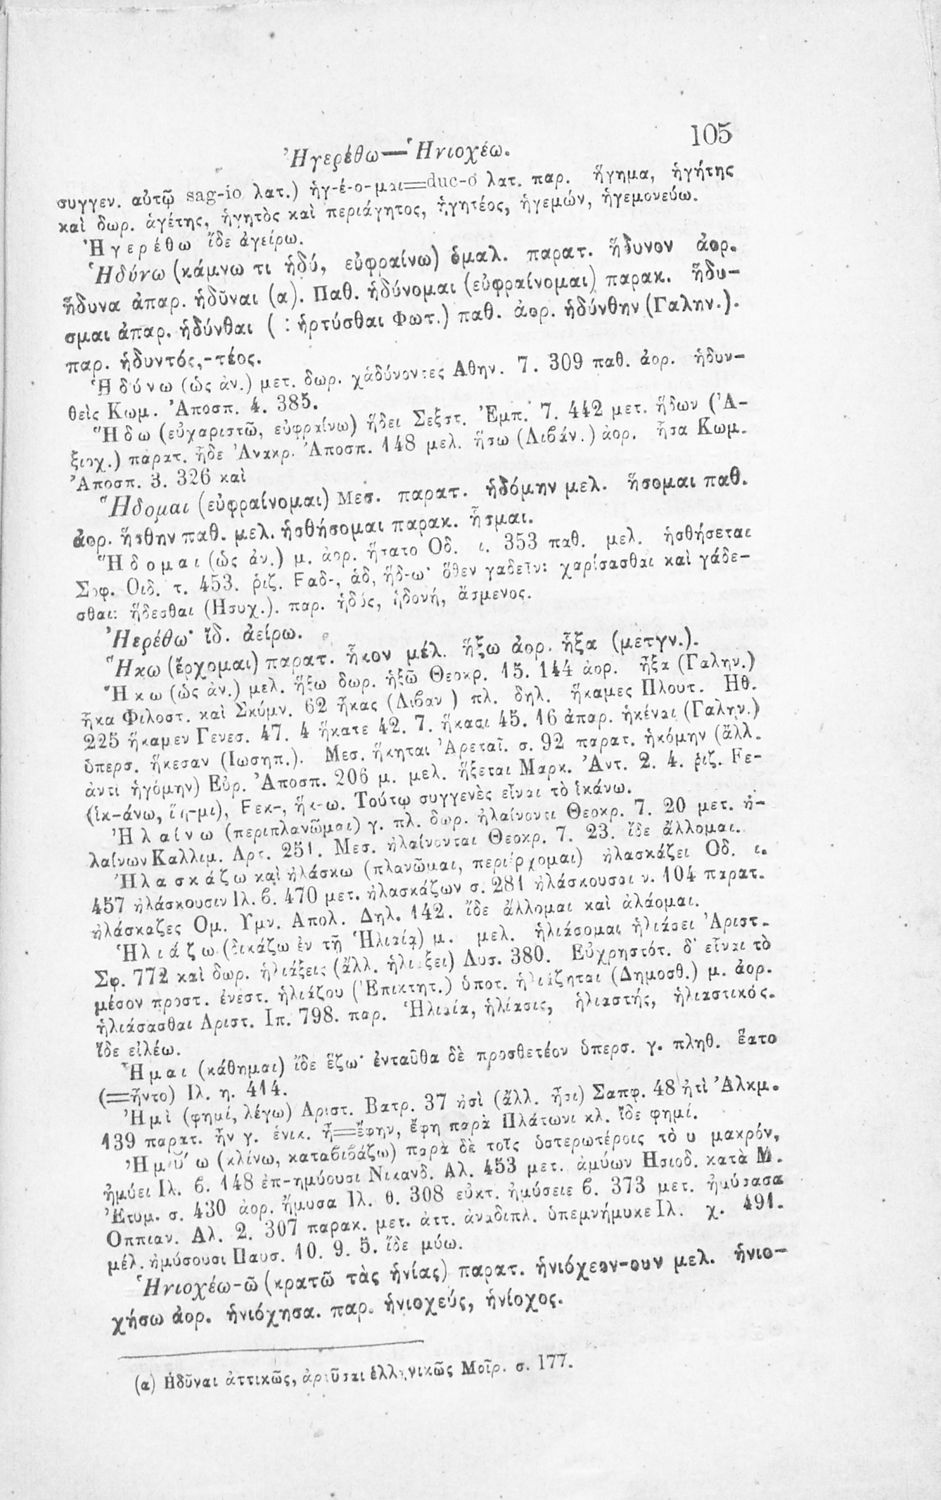 Ἠγερέθω—Ἡνιοχέω. 105
συγγεν. αὐτῷ sag-io λατ.) ἡγ-έ-ο-μαι=duc-o λατ. παρ. ἥγημα, ἡγήτης
καὶ δωρ. ἁγέτης, ἡγητὸς καὶ περιάγητος, ἡγητέος, ἡγεμών, ἡγεμονεύω.
Ἠγερέθω ἴδε ἀγείρω.
Ἡδύνω (κάμνω τι ἡδύ, εὐφραίνω) ὁμαλ. παρατ. ἥδυνον ἀορ.
ἥδυνα ἀπαρ. ἡδῦναι (α). Παθ. ἡδύνομαι (εὐφραίνομαι) παρακ. ἥδυ-
σμαι ἀπαρ. ἡδύνθαι ( : ἡρτύσθαι Φωτ.) παθ. ἀορ. ἡδύνθην (Γαλην.).
παρ. ἡδυντός,-τέος.
Ἡδύνω (ὡς ἀν.) μετ. δωρ. χἀδύνοντες Αθην. 7. 309 παθ. ἀορ. ἡδυν-
θεὶς Κωμ. Ἀποσπ. 4. 385.
Ἥδω (εὐχαριστῶ, εὐφραίνω) ἥδει Σεξστ. Ἐμπ. 7. 442 μετ. ἥδων (Ἀ-
ξιοχ.) παρατ. ἧδε Ἀνακρ. Ἀποσπ. 148 μελ. ἥσω (Λιβάν.) ἀορ. ἧσα Κωμ.
Ἀποσπ. 3. 326 καὶ
Ἥδομαι (εὐφραίνομαι) Μεσ. παρατ. ἡδόμην μελ. ἥσομαι παθ.
ἀορ. ἥσθην παθ. μελ. ἡσθήσομαι παρακ. ἧσμαι.
Ἥδομαι (ὡς ἀν.) μ. ἀορ. ἥσατο Οδ. ι. 353 παθ. μελ. ἡσθήσεται
Σοφ. Οιδ. τ. 453. ῥιζ. Fαδ-, ἁδ, ἥδ-ω· ὅθεν γαδεῖν: χαρίσασθαι καὶ γάδε-
σθαι: ἥδεσθαι (Ησυχ.). παρ. ἡδύς, ἡδονή, ἄσμενος.
Ἠερέθω· ἴδ. ἀείρω.
Ἥκω (ἔρχομαι) παρατ. ἧκον μέλ. ἥξω ἀορ. ἧξα (μετγν.).
Ἥκω (ὡς ἀν.) μελ. ἥξω δωρ. ἡξῶ Θεοκρ. 15. 144 ἀορ. ἧξα (Γαλην.)
ἧκα Φιλοστ. καὶ Σκύμν. 62 ἧκας (Λιβαν ) πλ. δηλ. ἥκαμες Πλουτ. Ηθ.
225 ἥκαμεν Γενεσ. 47. 4 ἥκατε 42. 7. ἥκασι 45. 16 ἀπαρ. ἡκέναι (Γαλην.)
ὑπερσ. ἥκεσαν (Ιωσηπ.). Μεσ. ἥκηται Ἀρεταῖ. σ. 92 παρατ. ἡκόμην (ἄλλ.
ἀντὶ ἡγόμην) Εὐρ. Ἀποσπ. 206 μ. μελ. ἥξεται Μαρκ. Ἀντ. 2. 4. ῥιζ. Fε-
(ἱκ-άνω, ἵη-μι), Fεκ-, ἥκ-ω. Τούτῳ συγγενὲς εἶναι τὸ ἱκάνω.
Ἠλαίνω (περιπλανῶμαι) γ. πλ. δωρ. ἠλαίνοντι Θεοκρ. 7. 20 μετ. ἠ-
λαίνων Καλλιμ. Αρτ. 251. Μεσ. ἠλαίνονται Θεοκρ. 7. 23. ἴδε ἄλλομαι.
Ἠλασκάζω καὶ ἠλάσκω (πλανῶμαι, περιέρχομαι) ἠλασκάζει Οδ. ι.
457 ἠλάσκουσιν Ιλ. β. 470 μετ. ἠλασκάζων σ. 281 ἠλάσκουσαι ν. 104 παρατ.
ἠλάσκαζες Ομ. Υμν. Απολ. Δηλ. 142. ἴδε ἄλλομαι καὶ ἀλάομαι.
Ἡλιάζω (δικάζω ἐν τῇ Ἡλιαίᾳ) μ. μελ. ἡλιάσομαι ἡλιάσει Ἀριστ.
Σφ. 772 καὶ δωρ. ἡλιάξεις (ἄλλ. ἡλιάξει) Λυσ. 380. Εὐχρηστότ. δ' εἶναι τὸ
μέσον προστ. ἐνεστ. ἡλιάζου (Ἐπικτητ.) ὑποτ. ἡλιάζηται (Δημοσθ.) μ. ἀορ.
ἡλιάσασθαι Αριστ. Ιπ. 798. παρ. Ἡλιαία, ἡλίασις, ἡλιαστής, ἡλιαστικός.
ἴδε εἰλέω.
Ἧμαι (κάθημαι) ἴδε ἕζω· ἐνταῦθα δὲ προσθετέον ὑπερσ. γ. πληθ. ἕατο
(=ἧντο) Ιλ. η. 414.
Ἠμὶ (φημί, λέγω) Αριστ. Βατρ. 37 ἠσὶ (ἄλλ. ἦσι) Σαπφ. 48 ἠτὶ Ἀλκμ.
139 παρατ. ἦν γ. ἑνικ. ἦ=ἔφην, ἔφη παρὰ Πλάτωνι κλ. ἴδε φημί.
Ἠμύω (κλίνω, καταβιβάζω) παρὰ δὲ τοῖς ὑστερωτέροις τὸ υ μακρόν,
ἠμύει Ιλ. β. 148 ἐπ-ημύουσι Νικανδ. Αλ. 453 μετ. ἀμύων Ησιοδ. κατὰ Μ.
Ἐτυμ. σ. 430 ἀορ. ἤμυσα Ιλ. θ. 308 εὐκτ. ἠμύσειε β. 373 μετ. ἠμύσασα
Οππιαν. Αλ. 2. 307 παρακ. μετ. ἀττ. ἀναδιπλ. ὑπεμνήμυκε Ιλ. χ. 491.
μέλ. ἠμύσουσι Παυσ. 10. 9. 5. ἴδε μύω.
Ἡνιοχέω-ῶ (κρατῶ τὰς ἡνίας) παρατ. ἡνιόχεον-ουν μελ. ἡνιο-
χήσω ἀορ. ἡνιόχησα. παρ. ἡνιοχεύς, ἡνίοχος.
(α) Ηδῦναι ἀττικῶς, ἀρτῦσαι ἑλληνικῶς Μοῖρ. σ. 177.